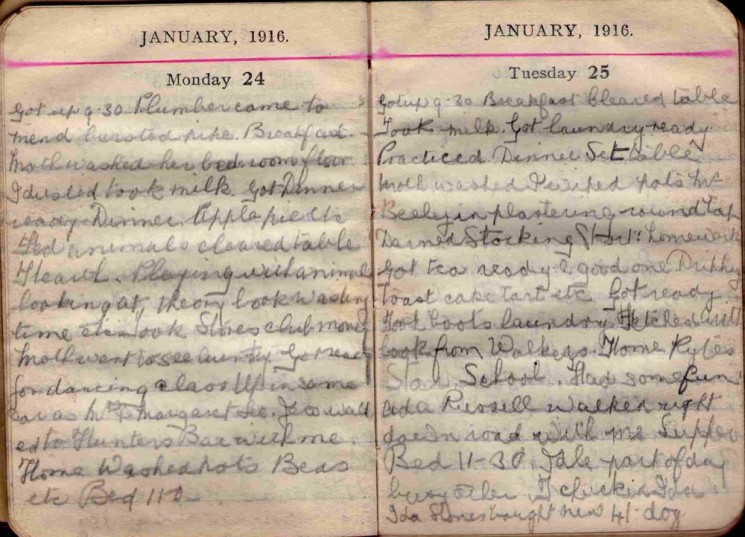 JANUARY, 1916.
Monday 24
Got up 9.30 Plumber came to
mend bursted pipe. Breakfast
Moth washed her bedroom floor
I dusted took milk. Got Dinner
ready Dinner. Apple pie etc
Fed animals cleared table
Played with animals
looking at theory book wasting
time etc took Stores club money
Moth went to see Aunty. Got ready
for dancing class Up in same
car as Mrs & Margaret Lee. Jess walk
ed to Hunters Bar with me.
Home Washed pots Beds
etc Bed 11-0
JANUARY, 1916.
Tuesday 25
Got up 9.30 Breakfast Cleared table
Took milk. Got laundry ready
Practiced Dinner Set table
Moth washed I wiped pots Mr
Beeley in plastering round tap
Darned Stocking homework
Got tea ready & good one
toast cake tart etc Got ready
Took boots laundry. Fetched
book from Walkers. Home
School. Had some fun
Ida Russell walked right
down road with me Supper
Bed 11-30. part of day
busy other I
Ida Stones bought new dog